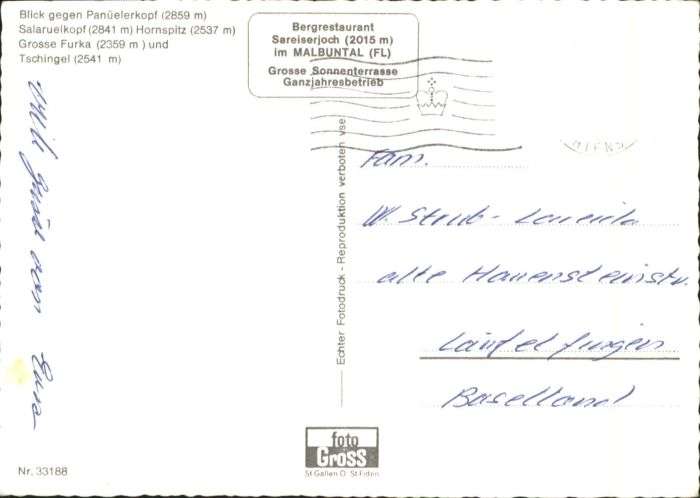 Blick gegen Panüelerkopf (2859 m)
Salaruelkopf (2841 m) Hornspitz (2537 m)
Grosse Furka (2359 m) und
Tschingel (2541 m)
Bergrestaurant
Sareiserjoch (2015 m)
im MALBUNTAL (FL)
Grosse Sonnenterrasse
Ganzjahresbetrieb
Fam.
W. Strub-
alte Hauensteinstr.
Läufelfingen
Baselland
Echter Fotodruck - Reproduktion verboten
foto
Gross
St Gallen O St Fiden
Nr. 33188